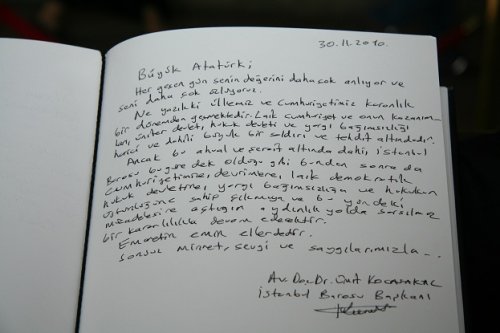 30.11.2010.
Büyük Atatürk;
Her geçen gün senin değerini daha çok anlıyor ve
seni daha çok özlüyoruz.
Ne yazık ki Ülkemiz ve Cumhuriyetimiz karanlık
bir dönemden geçmektedir. Laik cumhuriyet ve onun kazanım-
ları, üniter devlet, hukuk devleti ve yargı bağımsızlığı
harici ve dahili büyük bir saldırı ve tehdit altındadır.
Ancak bu ahval ve şerait altında dahi, İstanbul
Barosu bugüne dek olduğu gibi bundan sonra da
Cumhuriyetimize, devrimlere, laik demokratik
hukuk devletine, yargı bağımsızlığına ve hukukun
üstünlüğüne sahip çıkmaya ve bu yöndeki
mücadelesine açtığın aydınlık yolda sarsılmaz
bir kararlılıkla devam edecektir.
Emanetin emin ellerdedir.
Sonsuz minnet, sevgi ve saygılarımızla...
Av. Doç. Dr. Ümit Kocasakal
İstanbul Barosu Başkanı